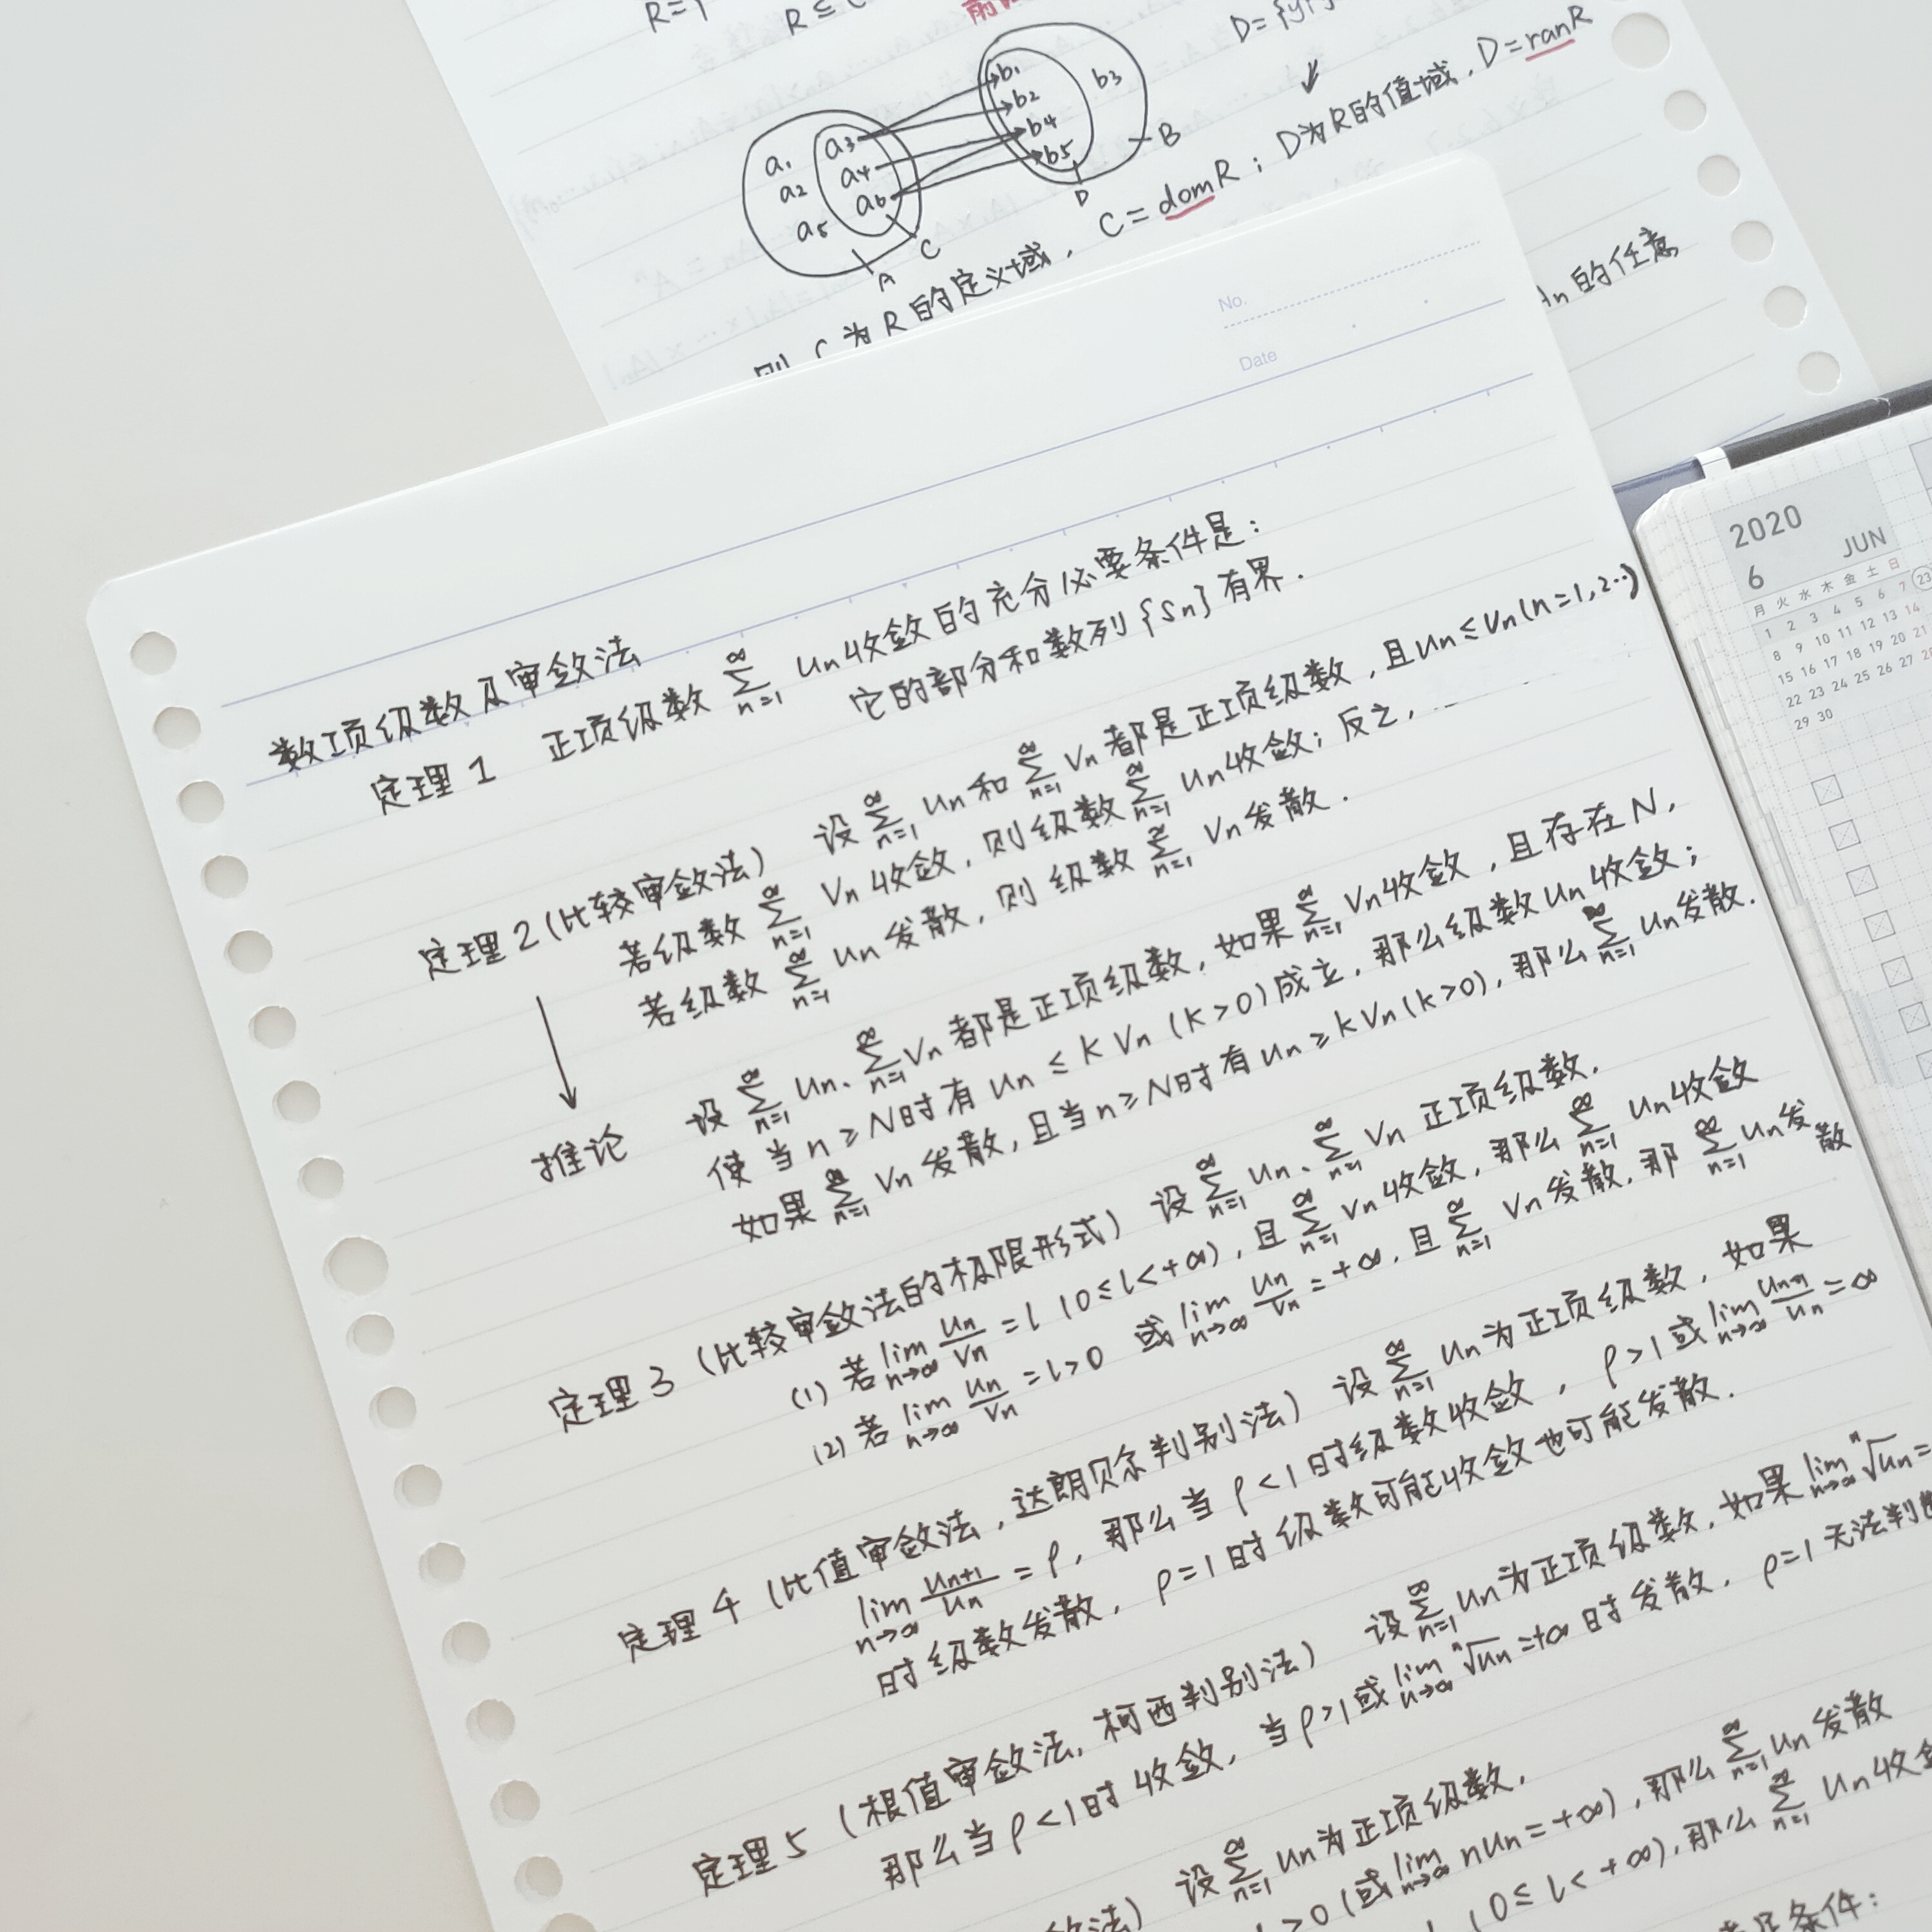 R=
R ≤
D={y|
b₁
b₂
b₃
b₄
b₅
a₁
a₂
a₃
a₄
a₅
a₆
B
D
C
A
则 C 为 R 的定义域, C = domR ; D为R的值域, D = ranR
的任意
No.
Date
数项级数及审敛法
定理 1 正项级数 ∑_{n=1}^{∞} un 收敛的充分必要条件是:
它的部分和数列 {Sn} 有界.
定理 2 (比较审敛法) 设 ∑_{n=1}^{∞} un 和 ∑_{n=1}^{∞} vn 都是正项级数, 且 un ≤ vn (n=1,2…)
若级数 ∑_{n=1}^{∞} vn 收敛, 则级数 ∑_{n=1}^{∞} un 收敛; 反之,
若级数 ∑_{n=1}^{∞} un 发散, 则 级数 ∑_{n=1}^{∞} vn 发散.
↓
推论 设 ∑_{n=1}^{∞} un、∑_{n=1}^{∞} vn 都是正项级数, 如果 ∑_{n=1}^{∞} vn 收敛, 且存在 N,
使当 n ≥ N 时有 un ≤ k vn (k>0) 成立, 那么级数 un 收敛;
如果 ∑_{n=1}^{∞} vn 发散, 且当 n ≥ N 时有 un ≥ k vn (k>0), 那么 ∑_{n=1}^{∞} un 发散.
定理 3 (比较审敛法的极限形式) 设 ∑_{n=1}^{∞} un、∑_{n=1}^{∞} vn 正项级数.
(1) 若 lim_{n→∞} un/vn = l (0 ≤ l < +∞), 且 ∑_{n=1}^{∞} vn 收敛, 那么 ∑_{n=1}^{∞} un 收敛
(2) 若 lim_{n→∞} un/vn = l > 0 或 lim_{n→∞} un/vn = +∞, 且 ∑_{n=1}^{∞} vn 发散, 那 ∑_{n=1}^{∞} un 发散
定理 4 (比值审敛法, 达朗贝尔判别法) 设 ∑_{n=1}^{∞} un 为正项级数, 如果
lim_{n→∞} un+1/un = ρ, 那么当 ρ < 1 时级数收敛, ρ > 1 或 lim_{n→∞} un+1/un = ∞
时级数发散, ρ = 1 时 级数可能收敛也可能发散.
定理 5 (根值审敛法, 柯西判别法) 设 ∑_{n=1}^{∞} un 为正项级数, 如果 lim_{n→∞} ⁿ√un =
那么当 ρ < 1 时 收敛, 当 ρ > 1 或 lim_{n→∞} ⁿ√un = +∞ 时 发散, ρ = 1 无法判
敛法) 设 ∑_{n=1}^{∞} un 为正项级数,
> 0 (或 lim_{n→∞} nun = +∞), 那么 ∑_{n=1}^{∞} un 发散
(0 ≤ l < +∞), 那么 ∑_{n=1}^{∞} un 收
条件:
2020
6 JUN
月 火 水 木 金 土 日
1 2 3 4 5 6 7
8 9 10 11 12 13 14
15 16 17 18 19 20 21
22 23 24 25 26 27 28
29 30
23